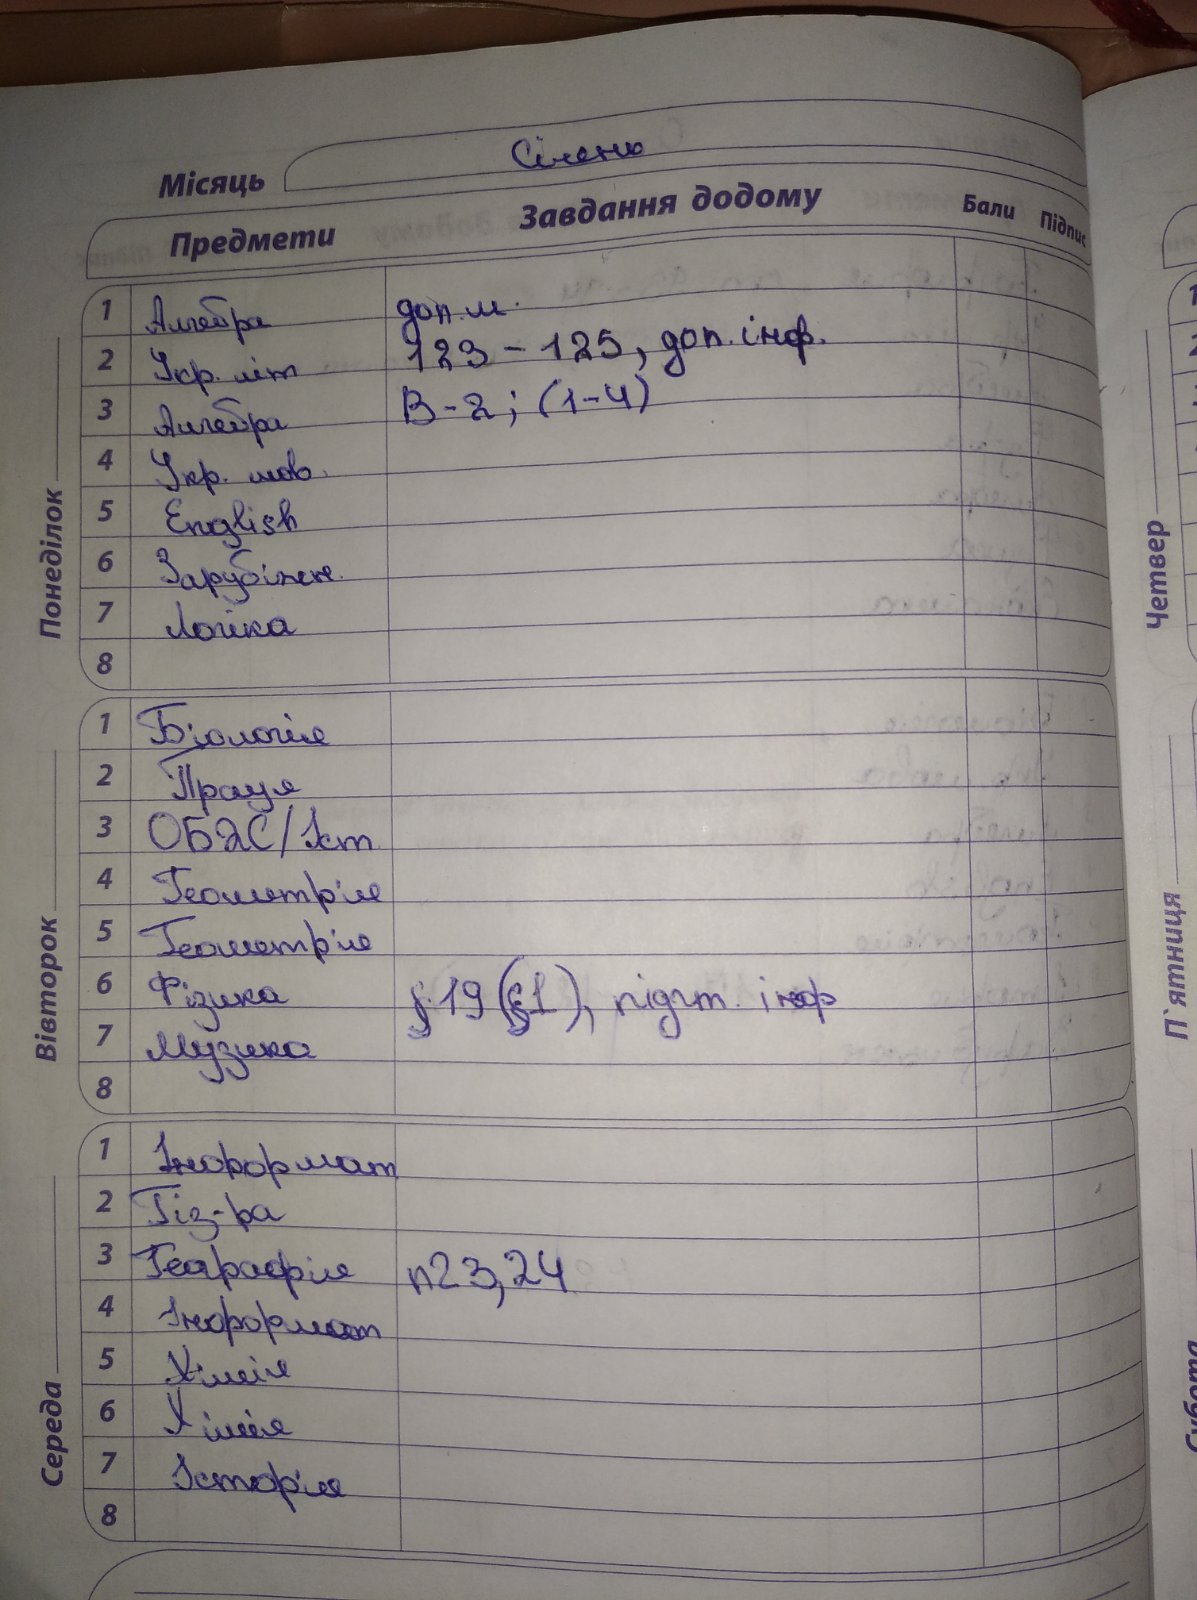 Місяць Січень
Предмети Завдання додому Бали Підпис
Понеділок
1 Алгебра доп.м.
2 Укр. літ 123-125, доп. інф.
3 Алгебра В-2; (1-4)
4 Укр. мов.
5 English
6 Зарубіжн.
7 Логіка
8
Вівторок
1 Біологія
2 Праця
3 ОБЗС/Іст
4 Геометрія
5 Геометрія
6 Фізика §.19 (§1), підгт. інф
7 Музика
8
Середа
1 Інформат
2 Фіз-ра
3 Географія п23,24
4 Інформат
5 Хімія
6 Хімія
7 Історія
8
Четвер
П`ятниця
Субота